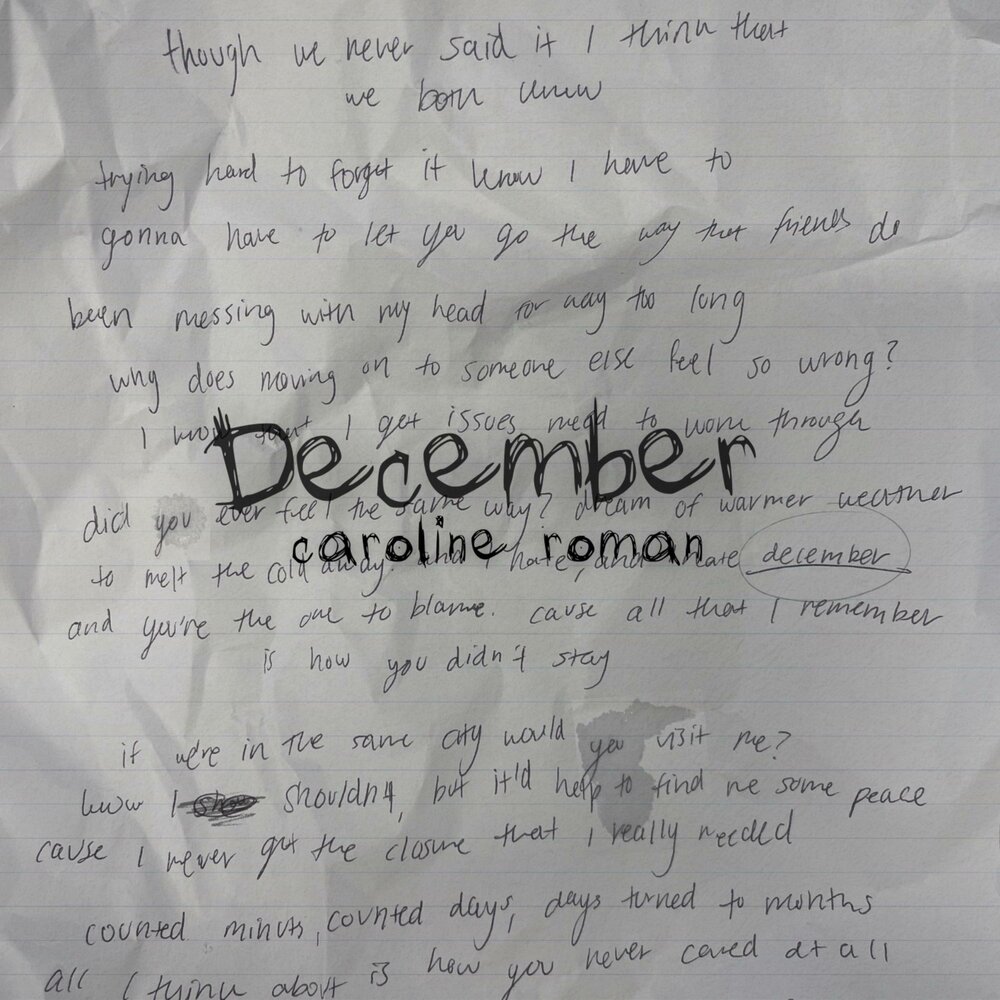 though we never said it I think that
we both know
trying hard to forget it know I have to
gonna have to let you go the way that friends do
been messing with my head for way too long
why does moving on to someone else feel so wrong?
I know that I got issues need to work through
December
did you ever feel the same way? dream of warmer weather
caroline roman
to melt the cold away. and I hate, and I hate december
and you're the one to blame. cause all that I remember
is how you didn't stay
if we're in the same city would you visit me?
know I shouldn't, but it'd help to find me some peace
cause I never got the closure that I really needed
counted minuts, counted days, days turned to months
all I think about is how you never cared at all